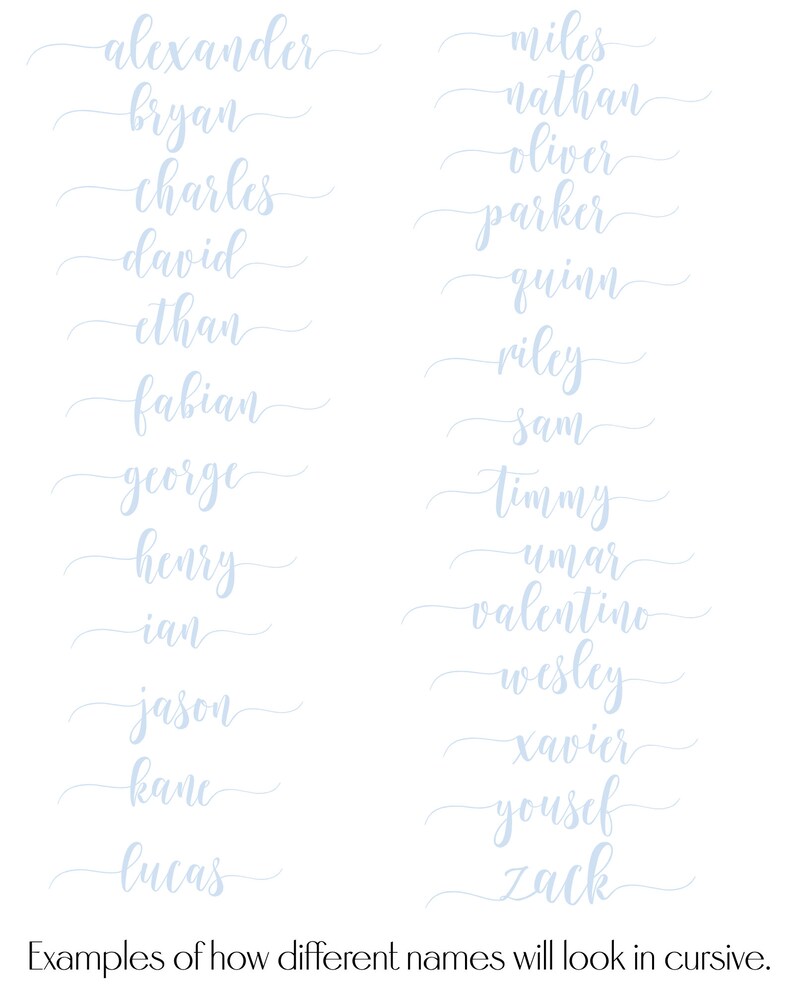 alexander
bryan
charles
david
ethan
fabian
george
henry
ian
jason
kane
lucas
miles
nathan
oliver
parker
quinn
riley
sam
timmy
umar
valentino
wesley
xavier
yousef
zack
Examples of how different names will look in cursive.